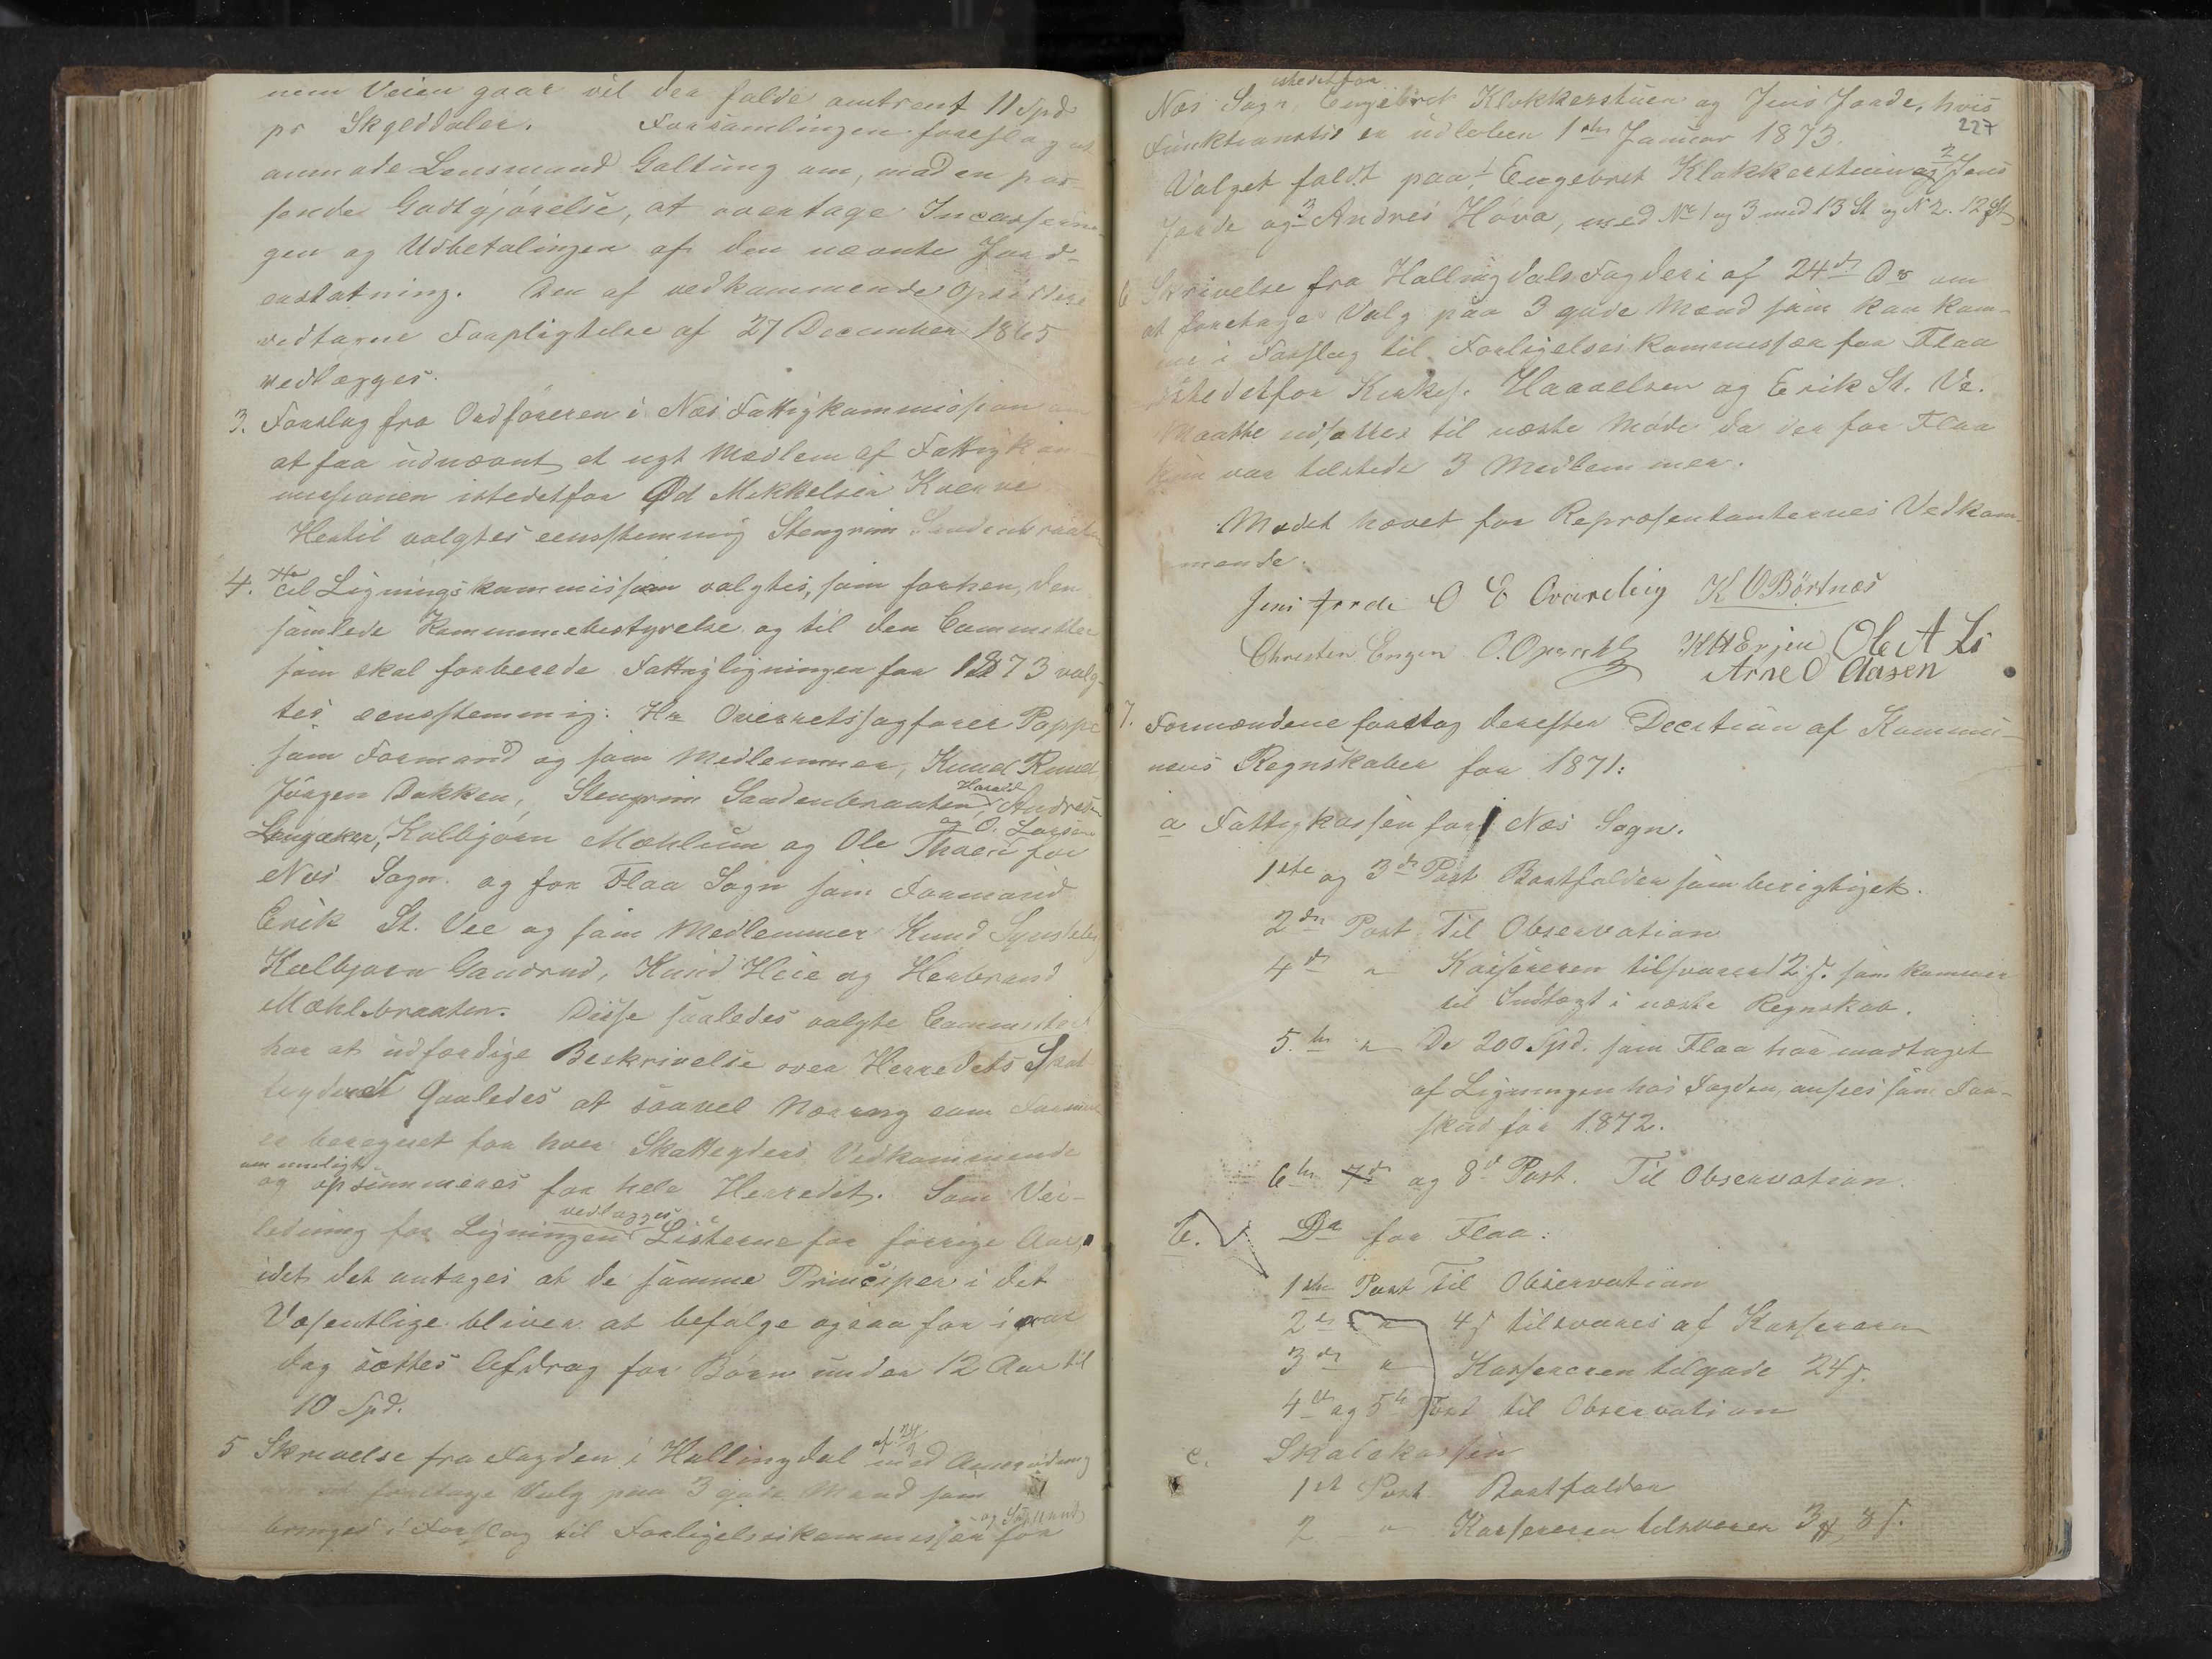 nem Veien gaar vil der falde omtrent 11 Spd
pr Skylddaler. Forsamlingen foreslog at
anmode Lensmand Galtung om, mod en pas-
sende Godtgjörelse, at overtage Incasserin-
gen og Udbetalingen af den nævnte Jord-
erstatning. Den af vedkommende Opsiddere
vedtagne Forpligtelse af 27 December 1865
vedlægges.
3. Forslag fra Ordföreren i Næs Fattigkommission om
at faa udnævnt et nyt Medlem af Fattigkom-
missionen istedetfor Mikkelsen
Hertil valgtes eensstemmig Stengrim Sandenbraaten
4. Til Ligningskommission valgtes, som forhen, den
samlede Kommunebestyrelse og til den Committee
som skal forberede Fattigligningen for 1873 valg-
tes eensstemmig: Hr Overretssagfører Poppe
som Formand og som Medlemmer, Knud Ruud
Jörgen Dokken, Stengrim Sandenbraaten, Harald Andresen
Lengaker, Kolbjørn Mæhlum og Ole Thoen og O. Larsen for
Næs Sogn og for Flaa Sogn som Formand
Erik St. Vee og som Medlemmer Knud
Kolbjørn Gandrud, Knud Heie og Herbrand
Mæhlbraaten. Disse saaledes valgte Committeer
har at udfærdige Beskrivelse over Herredets Skat-
teydere saaledes at saavel Næring som Formue
er beregnet for hver Skatteyders Vedkommende
og om muligt opsummeres for hele Herredet. Som Vei-
ledning for Ligningen vedlægges Listerne for forrige Aar,
idet det antages at de samme Principer i det
Væsentlige bliver at befølge ogsaa for iaar
dog sættes Afdrag for Börn under 12 Aar til
10 Spd.
5 Skrivelse fra Fogden i Hallingdal af 24/9 med Anmodning
om at foretage Valg paa 3 gode Mænd som
bringes i Forslag til Forligelseskommissær for
227
Næs Sogn istedetfor Engebret Klokkerstuen og Jens Jorde, hvis
Funktionstid er udloben 1ste Januar 1873.
Valget faldt paa 1 Engebret Klokkerstuen og 2 Jens
Jorde og 3 Andres Hova, med No 1 og 3 med 13 St og No 2. 12 St
6 Skrivelse fra Hallingdals Fogderi af 24de Ds om
at foretage Valg paa 3 gode Mænd som kan kom-
me i Forslag til Forligelseskommissær for Flaa
istedetfor Kirkes. Haavelsen og Erik St. Ve.
Maatte udsættes til næste Møde da der for Flaa
kun var tilstede 3 Medlemmer.
Mødet hævet for Repræsentanternes Vedkom-
mende.
Jens Jorde O E K O Børtnes
Christen Engen Ole A Li
Arne O Aasen
7. Formændene foretog derefter Decition af Kommu-
nens Regnskaber for 1871:
a Fattigkassen for Næs Sogn.
1ste og 3de Post Bortfalder som berigtiget.
2den Post Til Observation
4de " Kassereren tilsvarer 2 s. som kommer
til Indtægt i næste Regnskab.
5te " De 200 Spd. som Flaa har modtaget
af Ligningen hos Fogden, ansees som For-
skud for 1872.
6te 7de og 8de Post. Til Observation.
b. Do for Flaa:
1ste Post Til Observation
2de " 4 s tilsvares af Kassereren
3de " Kassereren tilgode 24 s.
4de og 5te Post til Observation
c. Skolekassen
1ste Post Bortfalder
2 " Kassereren tilsvarer 3 8 s.